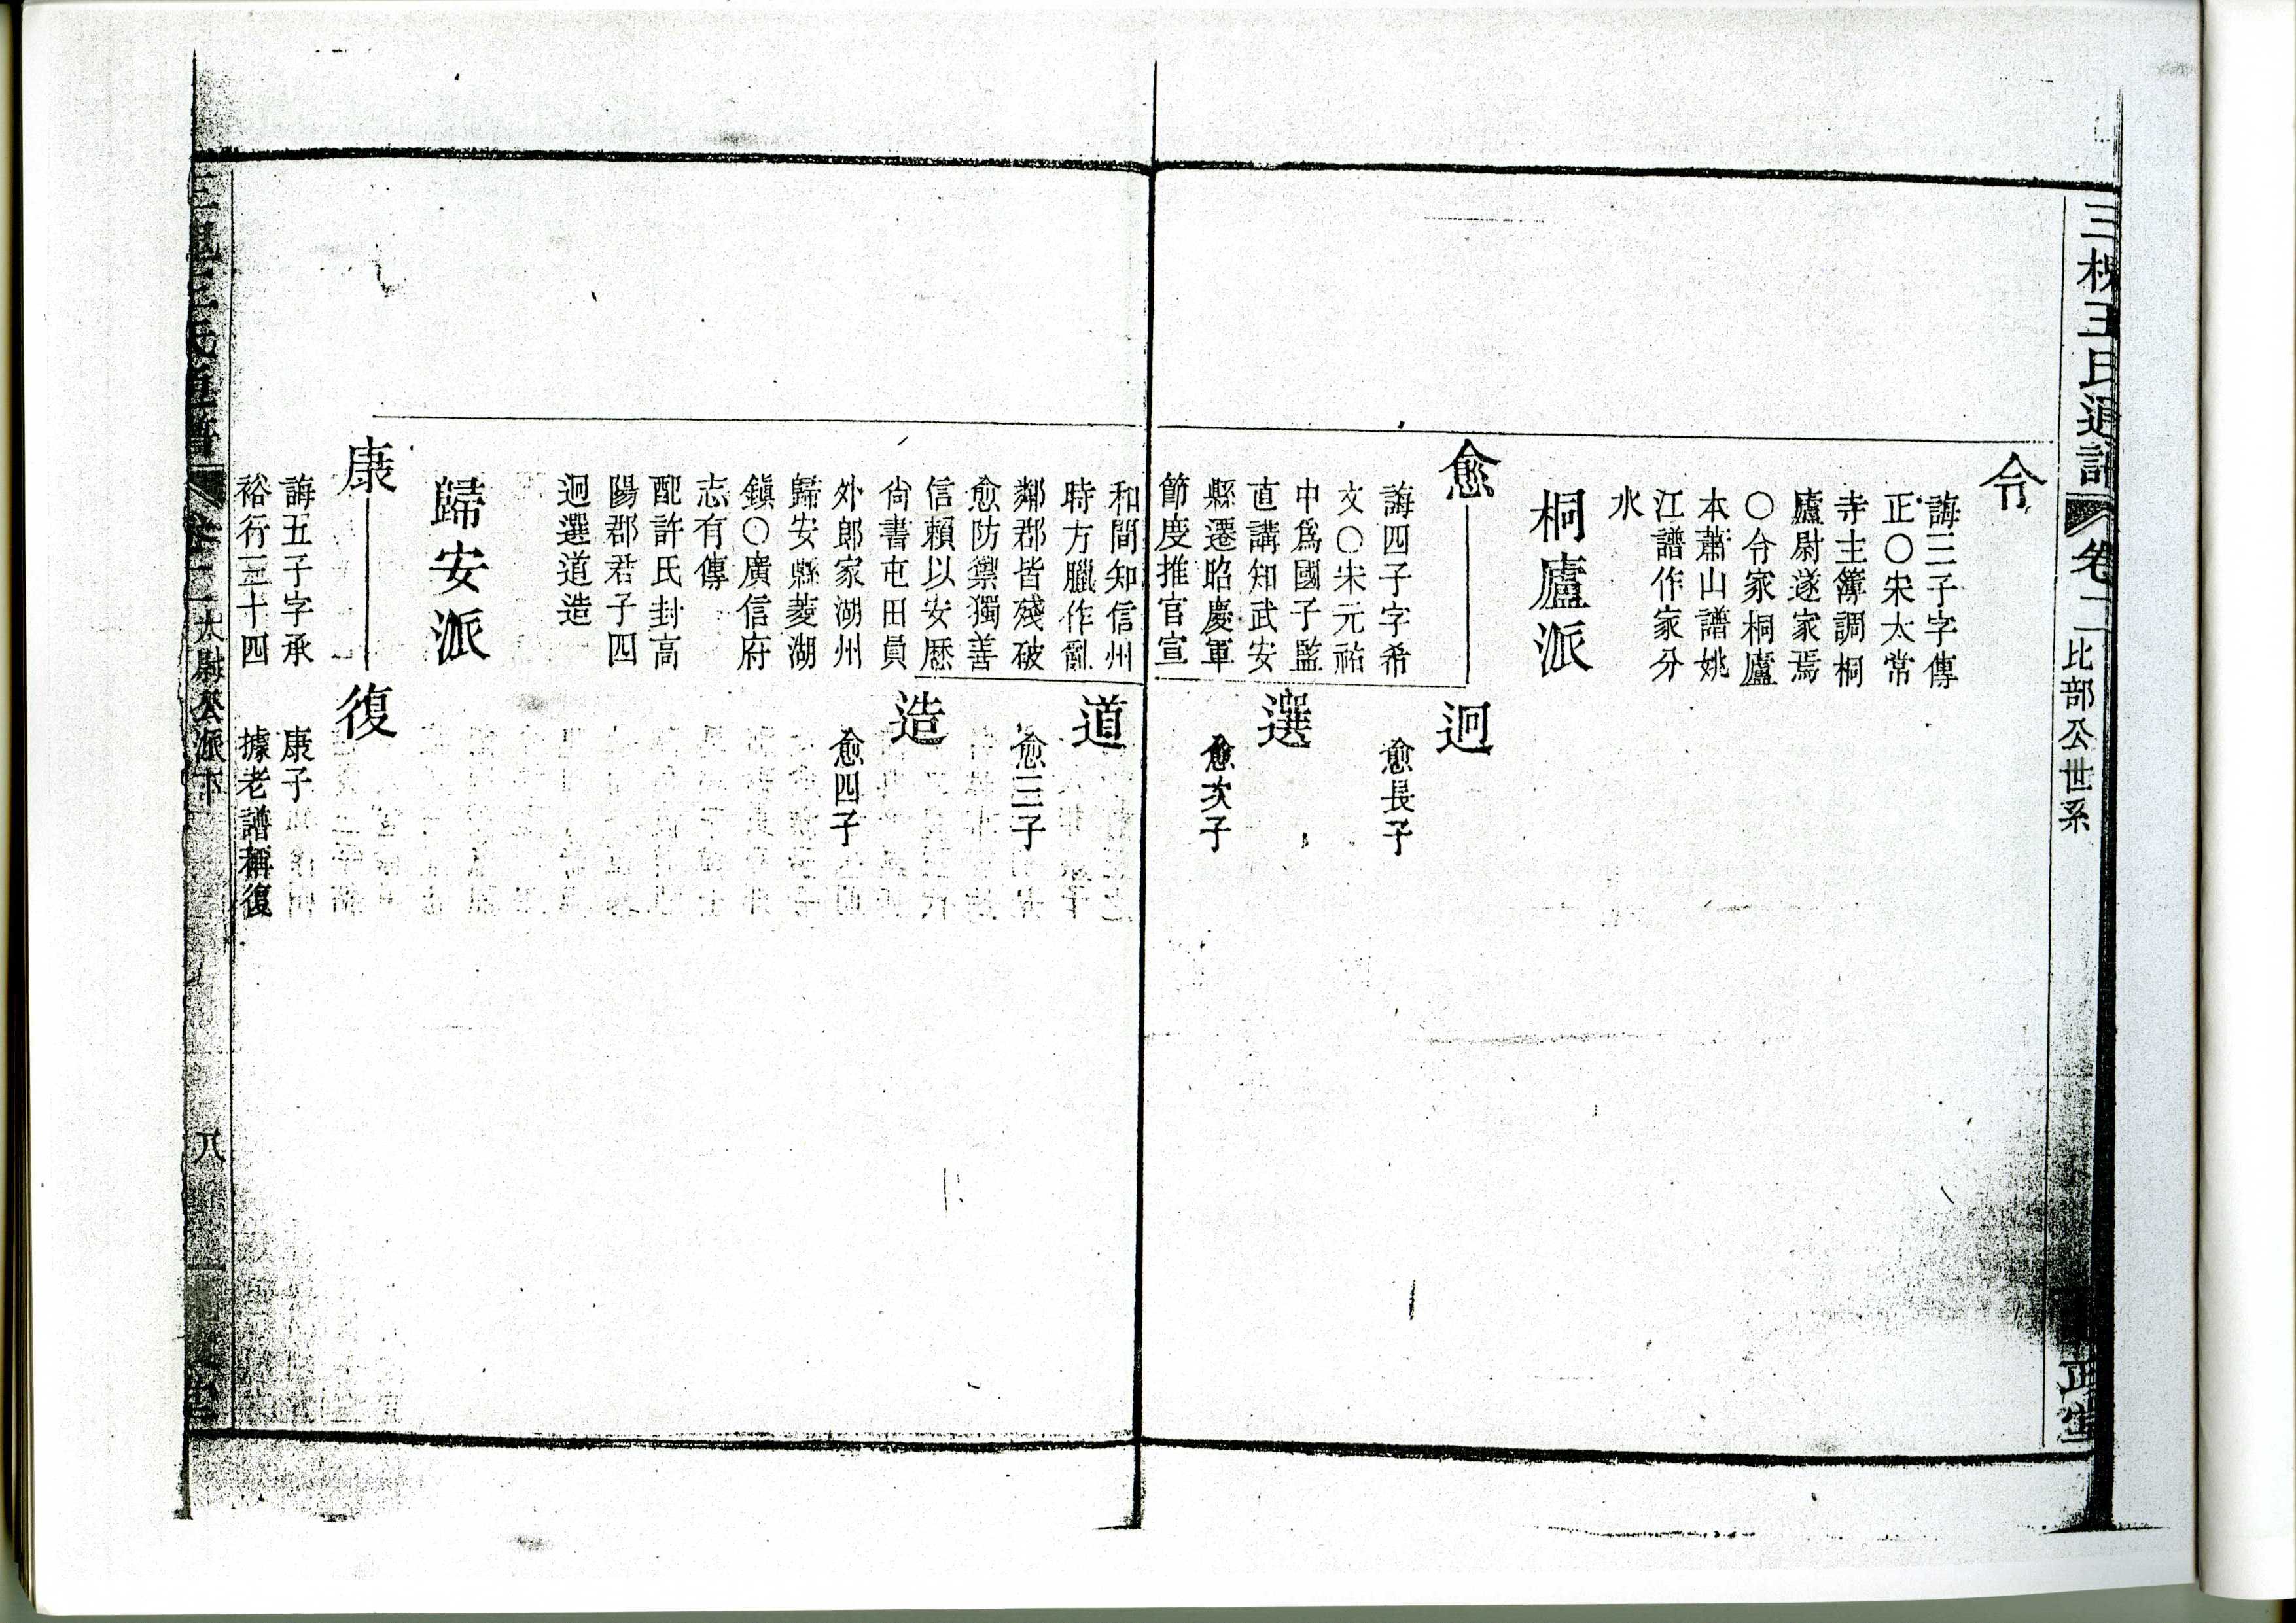 三槐王氏通譜 卷二 比部公世系
正
令
誨三子字傳
正〇宋太常
寺主簿調桐
廬尉遂家焉
〇令家桐廬
本蕭山譜姚
江譜作家分
水
桐廬派
愈
誨四子字希
文〇宋元祐
中爲國子監
直講知武安
縣遷昭慶軍
節度推官宣
迥
愈長子
選
愈次子
和間知信州
時方臘作亂
鄰郡皆殘破
愈防禦獨善
信賴以安歷
尙書屯田員
外郎家湖州
歸安縣菱湖
鎭〇廣信府
志有傳
配許氏封高
陽郡君子四
迥選道造
道
愈三子
造
愈四子
歸安派
康
誨五子字承
裕行三十四
復
康子
據老譜稱復
三槐王氏通譜 卷二 太尉公派下 八